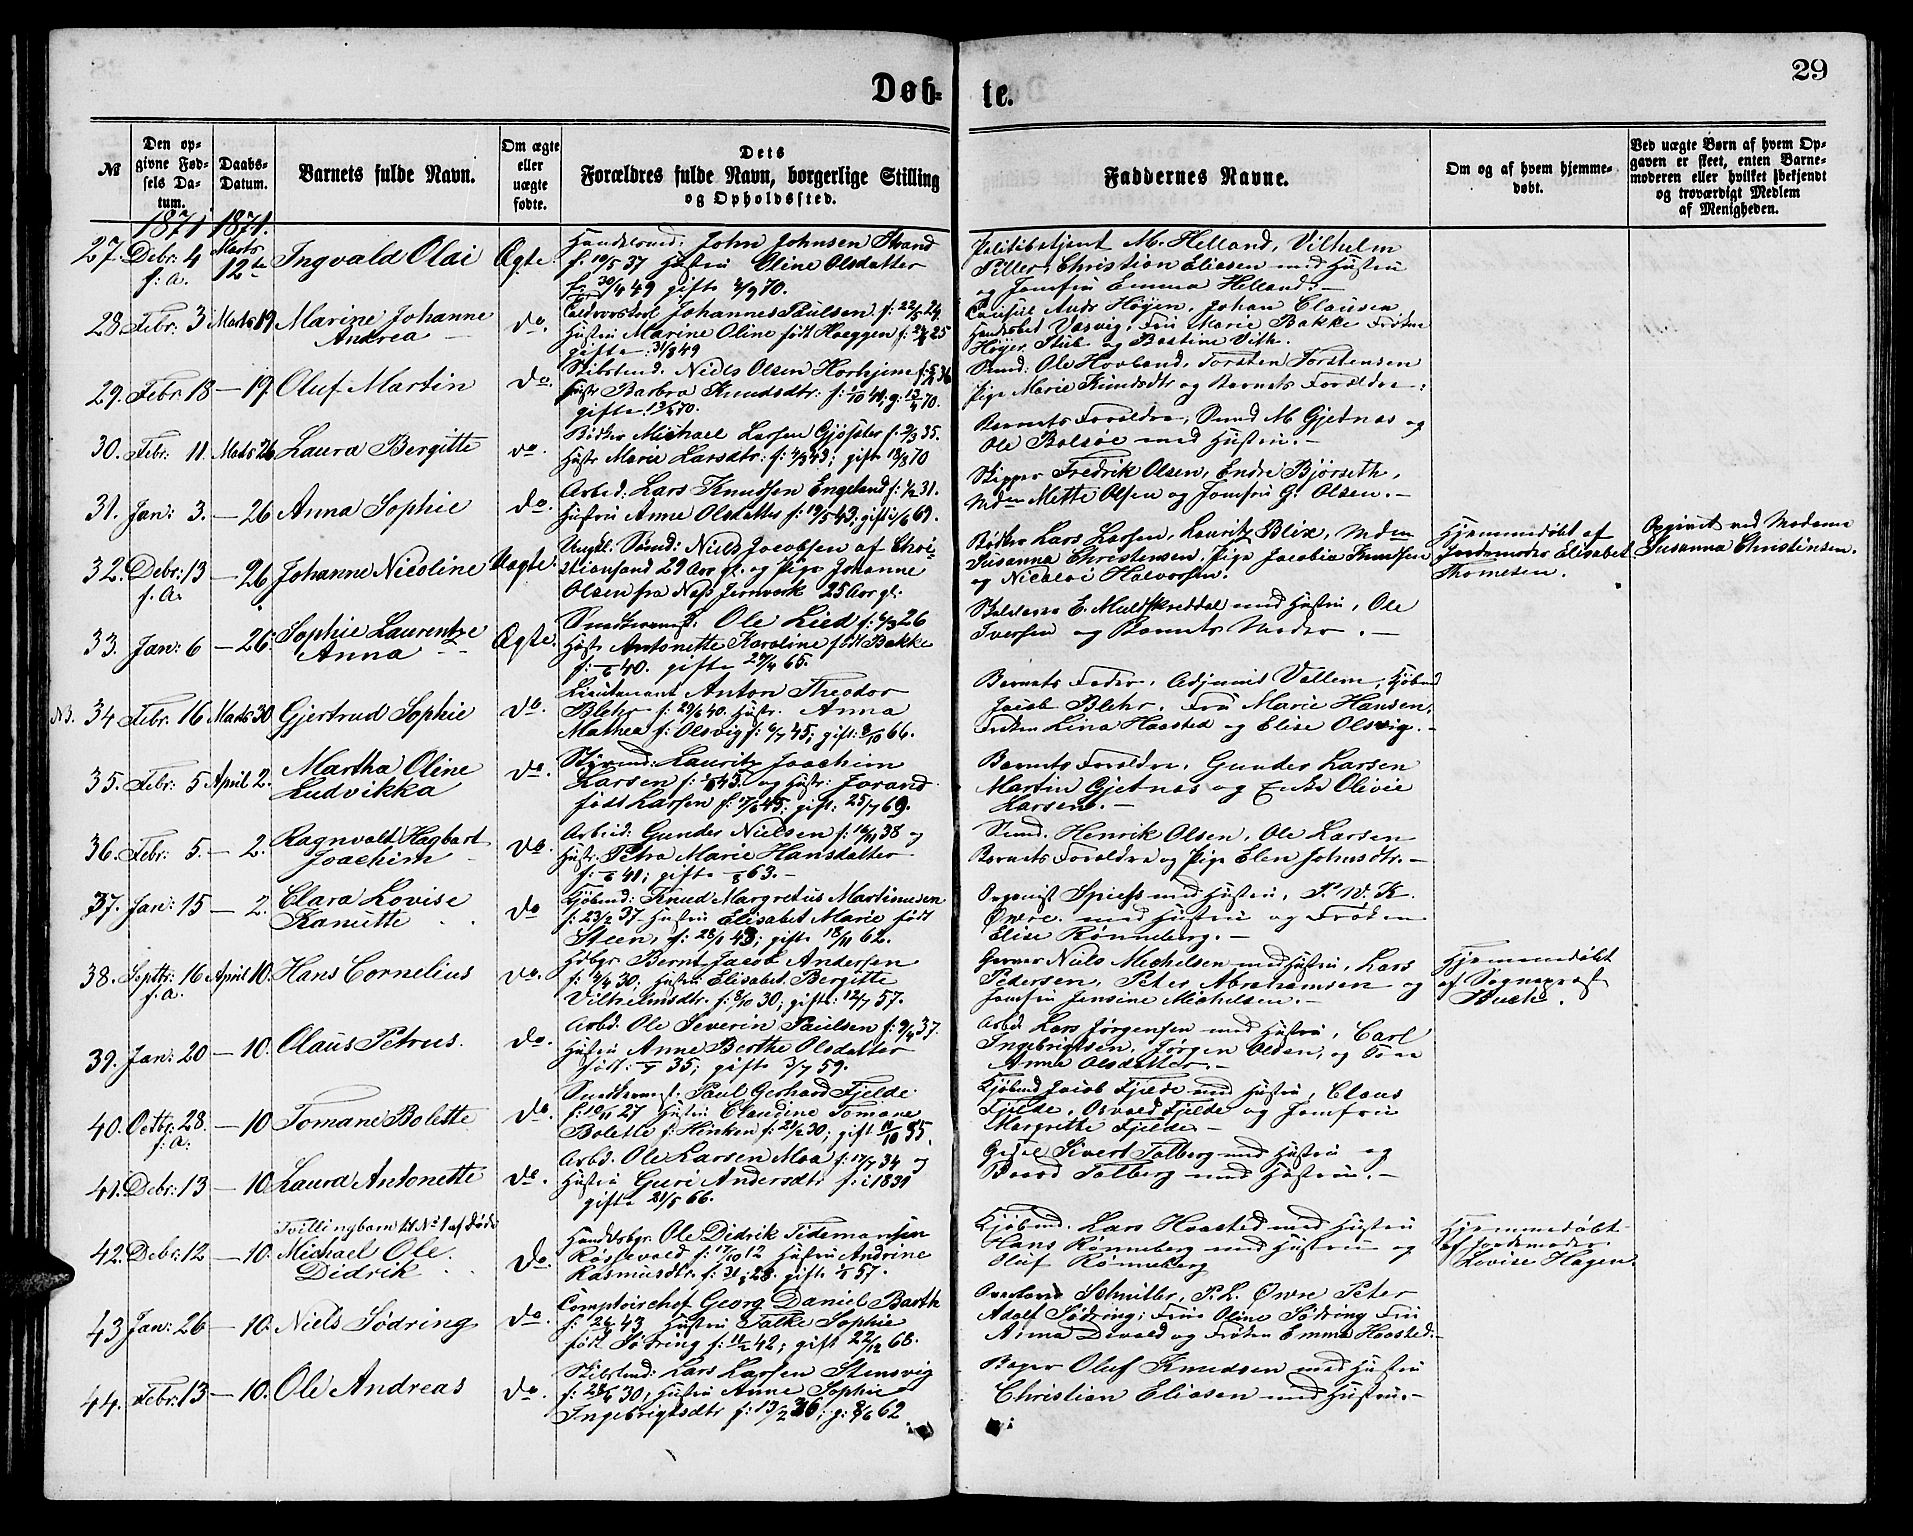 29
Døb-
te.
№
Den op-
givne Fød-
sels Da-
tum.
Daabs-
Datum.
Barnets fulde Navn.
Om ægte
eller
uægte
fødte.
Dets
Forældres fulde Navn, borgerlige Stilling
og Opholdssted.
Faddernes Navne.
Om og af hvem hjemme-
døbt.
Ved uægte Børn af hvem Op-
gaven er skeet, enten Barne-
moderen eller hvilket bekjendt
og troværdigt Medlem
af Menigheden.
1871 1871.
27. Debr: 4 f: A. Marts 12te Ingvald Olai Ægte
John Johnsen Strand
f: 19/5 37 Hustru Oline Olsdatter
f: 30/4 49 gifte 2/9 70.
Politibetjent M. Helland, Vilhelm
Piller, Christian Eliasen med Hustru
og Jomfru Emma Helland.
28. Febr: 3 Marts 19 Marine Johanne
Andrea do.
Johannes Paulsen f: 22/5 24.
Hustru Marine Oline født Hoeggen f: 25
gifte 31/8 49
Consul Andr Høyer, Johan Clausen
Vasvig, Fru Marie Bakke Frøken
Høyer, Stub og Bastine Vith.
29. Febr: 18 — 19. Oluf Martin do.
Niels Olsen Horhjem
Hustr Barbra Knudsdtr: f: 1/10 41; g: 13/4 70.
gifte 13/4 70.
Ole Hovland, Torsten Torstensen
Pige Marie Knudsdtr og Barnets Forældre.
30. Febr: 11. Marts 26 Laura Bergitte do.
Bødker Michael Larsen Gjøster f: 9/3 35.
Hustr Marie Larsdtr: f: 4/3 43; gift 18/8 70
Barnets Forældre, M Gjetnæs og
Ole Bolsøe med Hustru.
31. Jan: 3. — 26 Anna Sophie do.
Arbed: Lars Knudsen Engeland f: 1/2 31.
Hustru Anne Olsdatter f: 19/5 43; gifte 1/6 69.
Skipper Fredrik Olsen, Endre Bjørseth,
Mdm Mette Olsen og Jomfru G. Olsen.
32. Debr: 13 f. A. — 26 Johanne Nicoline Uægte.
Ungk. Sømd: Niels Jacobsen af Chri-
stiansand 29 Aar gl. og Pige Johanne
Olsen fra Næs Jernverk 25 Aar gl:
Bødker Lars Larsen, Lauritz Blix, Mdm
Susanna Christensen, Pige Jacobia Knudsen
og Nicolai Halvorsen.
Hjemmedøbt af
Jordemoder Elisabet
Thomesen.
Opgivet ved Madame
Susanna Christensen.
33. Jan: 6 — 26. Sophie Laurentze
Anna Ægte.
Ole Lied f: 4/3 26
Hustr Antonette Karoline født Bakke
f: 40. gifte 27/4 65.
E. Muldskreddal med Hustru, Ole
Iversen og Barnets Moder.
N3. 34 Febr: 16 Marts 30 Gjertrud Sophie do.
Lieutenant Anton Theodor
Blehr f: 29/6 40. Hustr. Anna
Mathea f: Olsvig f: 6/7 45; gift: 9/10 66.
Barnets Fader, Adjunct Vellem, Kjøbmd
Jacob Blehr, Fru Marie Hansen,
Frøken Lina Haasted og Elise Olsvig.
35. Febr: 5 April 2. Martha Oline
Ludvikka do.
Lauritz Joachim
Larsen f: 45. og Hustr: Jorand
født Larsen f: 17/6 45; gift: 25/7 69.
Barnets Forældre, Gunder Larsen
Martin Gjetnæs og Enke Olivie
Larsen.
36. Febr: 5. — 2. Ragnvald Hagbart
Joachim do.
Arbeid: Gunder Nielsen f: 10/11 38 og
Hustr. Petra Marie Hansdatter
f: 41; gifte 63.
Henrik Olsen, Ole Larsen
Barnets Forældre og Pige Elen Johnsdtr.
37. Jan: 15 — 2. Clara Lovise
Kanutte do
Kjøbmd: Knud Margretus Martinusen
f: 23/2 37 Hustru Elisabet Marie født
Steen, f: 28/1 43; gifte 18/11 62.
Organist Spiess med Hustru, P. W. K.
Øwre med Hustru og Frøken
Elise Rønneberg.
38. Septbr: 16 f. a. April 10. Hans Cornelius do.
Bernt Jacob Andersen
f: 9/4 30; Hustru Elisabet Bergitte
Vilhelmsdtr. f: 9/10 30; gifte: 12/7 57.
Garver Niels Michelsen med Hustru, Lars
Petersen, Peter Abrahamsen og
Jomfru Jensine Michelsen.
Hjemmedøbt
af Sogneprest
Buch.
39. Jan: 20 — 10. Olaus Petrus. do.
Arbd: Ole Severin Paulsen f: 9/4 37.
Hustru Anne Berthe Olsdatter
født: 35; gifte 3/7 59.
Arbd: Lars Jørgensen med Hustru, Carl
Ingebrigtsen, Jørgen Olsen, og
Anna Olsdatter.
40. Octbr: 28. f: a: — 10 Tomane Bolette do.
Paul Gerhard Fjelde
f: 10/11 27 Hustru Claudine Tomane
Bolette f: Hinken f: 21/2 30; gift 11/10 55.
Kjøbmd Jacob Fjelde med Hustru, Claus
Fjelde, Osvald Fjelde og Jomfru
Margrethe Fjelde.
41. Debr: 13 — 10. Laura Antonette do.
Arbd: Ole Larsen Moa f: 17/7 34 og
Hustru Guri Andersdtr f: i 1839
gifte 21/5 66.
Sivert Tolberg med Hustru og
Tolberg med Hustru.
Tvillingbarn til No 1 af døde
42. Debr: 12 — 10. Michael Ole
Didrik do.
Handelsbgr. Ole Didrik Tidemansen
Røssevold f: 17/10 12 Hustru Andrine
Rasmusdtr. f: 31/1 28. gifte 1/5 57.
Kjøbmd: Lars Haasted med Hustru
Hans Rønneberg med Hustru og
Oluf Rønneberg
Hjemmedøbt
af Jordemoder
Lovise Hagen.
43 Jan: 26 — 10. Niels Sødring do.
Comptoirchef Georg Daniel Barth
f: 43 Hustru Talke Sophie
født Sødring f: 11/2 42; gift 22/12 68.
Schnitler, P. L. Øwre Peter
Adolf Sødring; Frue Oline Sødring Fru
Anna Devold og Frøken Emma Haasted.
44. Febr: 13 — 10. Ole Andreas do.
Lars Larsen Stensvig
f: 28/6 30, Hustru Anne Sophie
Ingebrigtsdtr f: 13/2 36; g: 8/6 62
Bager Oluf Knudsen med Hustru
Christian Eliasen med Hustru.